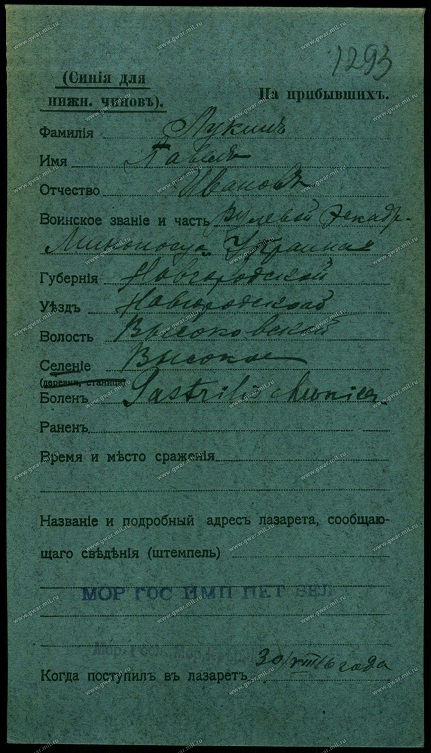 1293
(Синія для
нижн. чиновъ).
На прибывшихъ.
Фамилія Лукинъ
Имя Павелъ
Отчество Ивановъ
Воинское званіе и часть Рулевой
Миноносца Украина
Губернія Новгородской
Уѣздъ Новгородской
Волость Высоковской
Селеніе Высокое
(деревня, станица)
Боленъ Gastritis chronica
Раненъ
Время и мѣсто сраженія
Названіе и подробный адресъ лазарета, сообщаю-
щаго свѣдѣнія (штемпель)
МОР ГОС ИМП ПЕТ ВЕЛ
Когда поступилъ въ лазаретъ 30/VIII 16 года
www.gwar.mil.ru